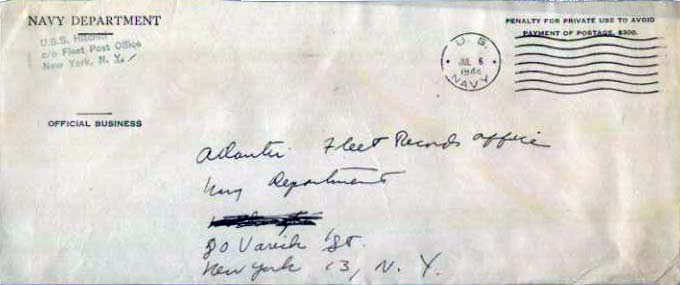 NAVY DEPARTMENT
U.S.S.
c/o Fleet Post Office
New York, N. Y.
OFFICIAL BUSINESS
U. S.
JUL 6
NAVY
PENALTY FOR PRIVATE USE TO AVOID
PAYMENT OF POSTAGE, $300.
Atlantic Fleet Records Office
Navy Department
80 Varick St.
New York 13, N. Y.